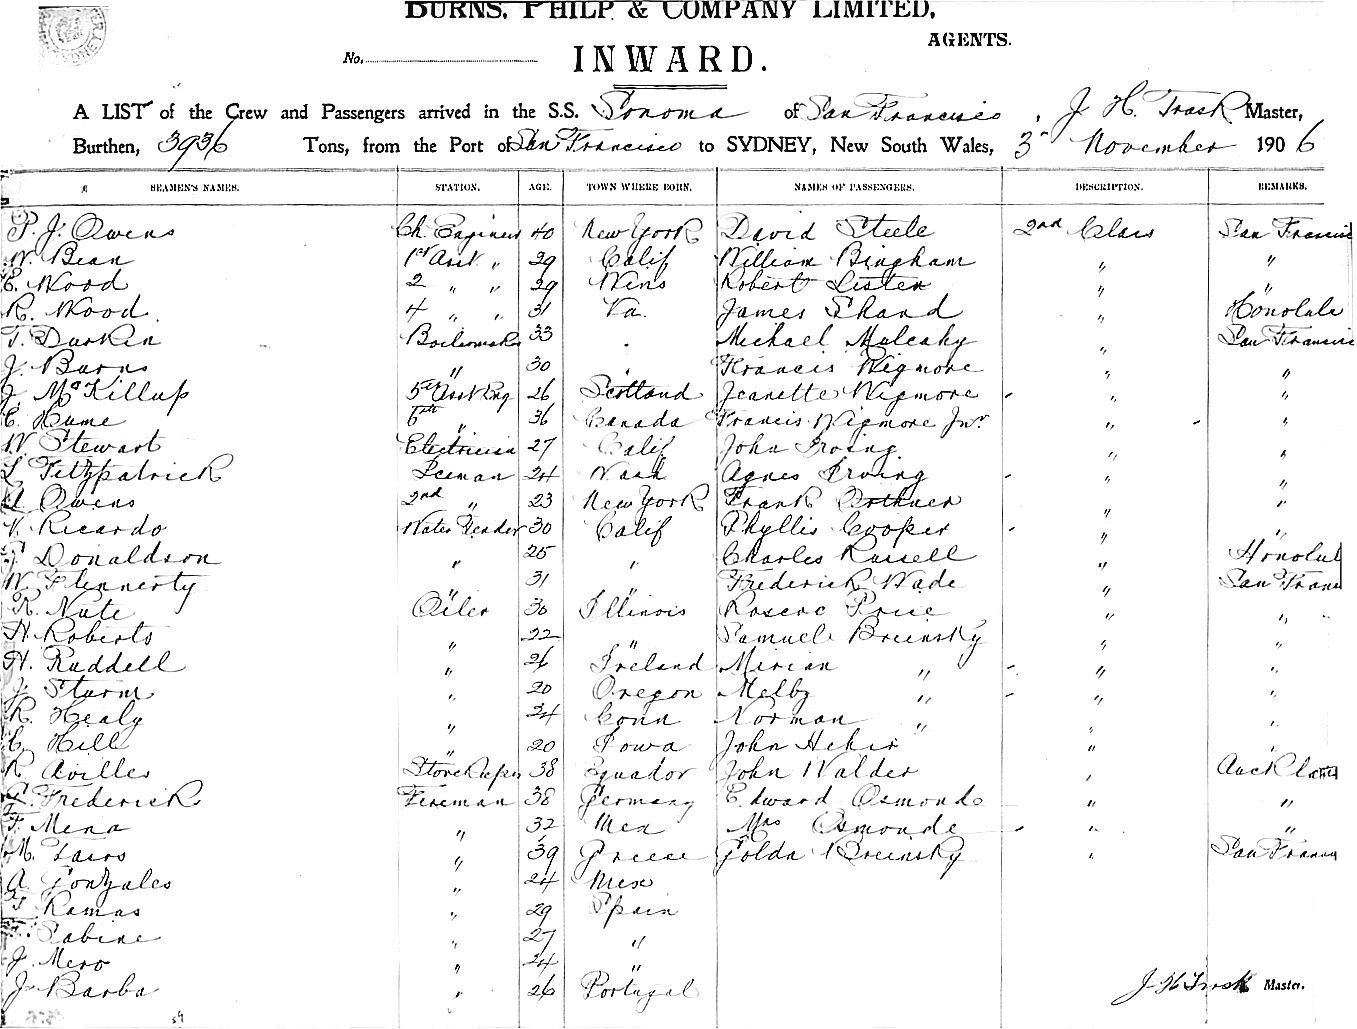 BURNS, PHILP & COMPANY LIMITED,
AGENTS.
No.
INWARD.
A LIST of the Crew and Passengers arrived in the S.S. Sonoma of San Francisco, J. H. Trask Master,
Burthen, 3936 Tons, from the Port of San Francisco to SYDNEY, New South Wales, 3rd November 1906
SEAMEN'S NAMES. STATION. AGE. TOWN WHERE BORN. NAMES OF PASSENGERS. DESCRIPTION. REMARKS.
P. J. Owens Ch. Engineer 40 New York David Steele 2nd Class San Francis
W. Bean 1st Asst " 29 Calif William Bingham " "
E. Wood 2 " " 29 Wins Robert Lister " "
R. Wood 4 " " 31 Va. James Shand " Honolulu
T. Durkin Boilermaker 33 " Michael Mulcahy " San Francis
J. Burns " 30 " Francis Wigmore " "
J. McKillup 5th Asst Eng 26 Scotland Jeanette Wigmore " "
C. Hume 6th " 36 Canada Francis Wigmore Jnr " "
W. Stewart Electrician 27 Calif John Irving " "
L. Fitzpatrick Iceman 24 Wash Agnes Irving " "
Owens 2nd " 23 New York Frank " "
V. Ricardo Water Tender 30 Calif Phyllis Cooper " "
T. Donaldson " 25 " Charles Russell " Honolul
W. Flennerty " 31 " Frederick Wade " San Fran
R. Nute Oiler 30 Illinois Roscoe Price " "
H. Roberts " 22 " Samuel Breinsky " "
H. Ruddell " 26 Ireland Mirian " " "
J. Sturm " 20 Oregon Melby " " "
R. Healy " 24 Conn Norman " " "
C. Hill " 20 Iowa John " "
R. Avilles Storekeeper 38 Equador John Walder " Auckland
Frederick Fireman 38 Germany Edward Osmonde " "
F. Mena " 32 Mex Mrs Osmonde " "
M. " 39 Greese Golda Breinsky " San Fran
A. Gonzales " 24 Mex
Ramas " 29 Spain
Sabine " 27 "
J. Mero " 24 "
J. Barba " 26 Portugal
J H Trask Master.